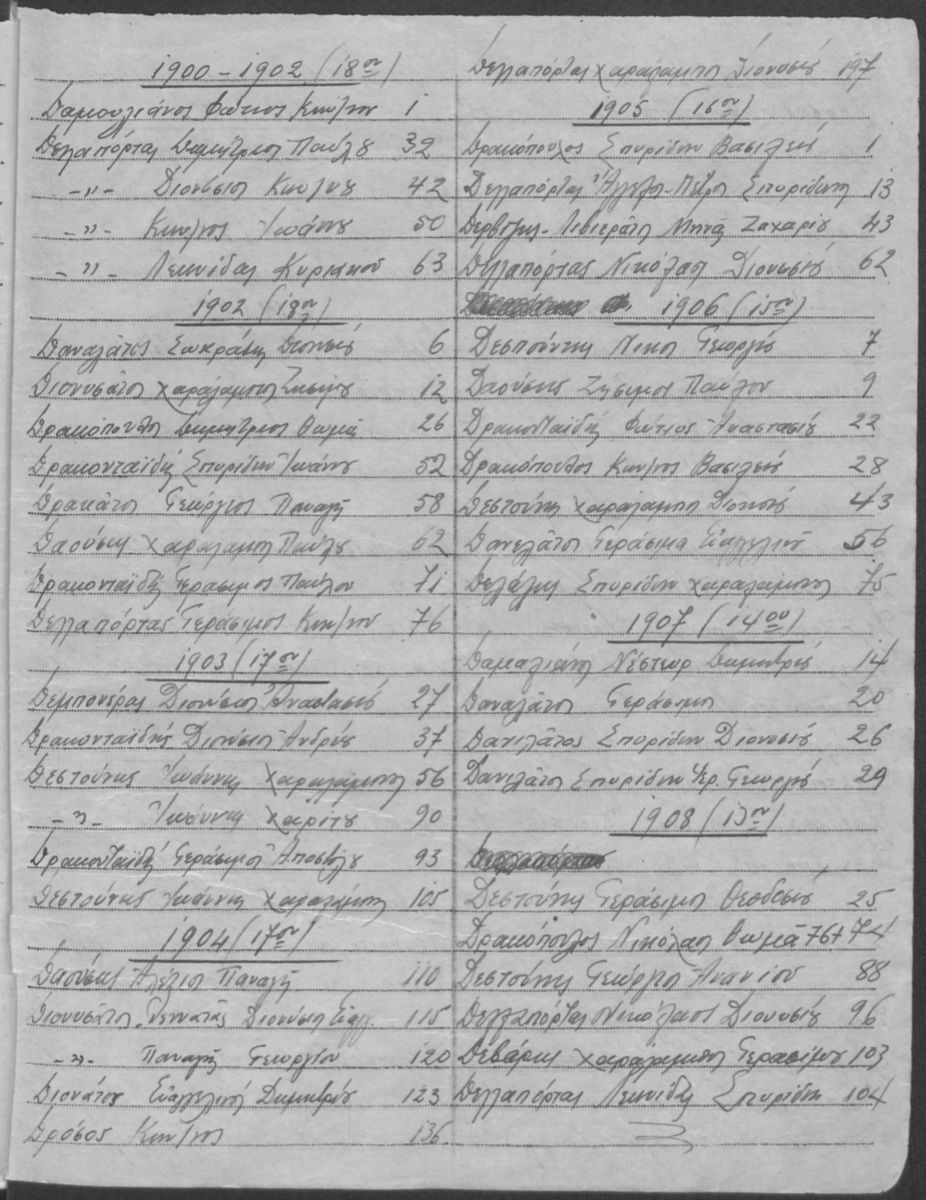 1900 - 1902 (18ον)
Δαμουλιάνος Φώτιος Κων/νου 1
Δελλαπόρτας Δημήτριος Παύλου 32
-〃- Διονύσιος Κων/νου 42
-〃- Κων/νος Ἰωάννου 50
-〃- Λεωνίδας Κυριακοῦ 63
1902 (18ον)
Δαναλᾶτος Σωκράτης Διονυσίου 6
Διονυσᾶτος Χαράλαμπος Ζησίμου 12
Δρακόπουλος Δημήτριος Θωμᾶ 26
Δρακονταϊδής Σπυρίδων Ἰωάννου 52
Δρακάτος Γεώργιος Παναγῆ 58
Δαούσης Χαράλαμπος Παύλου 62
Δρακονταϊδής Γεράσιμος Παύλου 71
Δελλαπόρτας Γεράσιμος Κων/νου 76
1903 (17ον)
Δεμπονέρας Διονύσιος Ἀναστασίου 27
Δρακονταϊδής Διονύσιος Ἀνδρέου 37
Δεστούνης Ἰωάννης Χαραλάμπους 56
-〃- Ἰωάννης Χαρίτου 90
Δρακονταϊδής Γεράσιμος Ἀποστόλου 93
Δεστούνης Ἰωάννης Χαραλάμπους 105
1904 (17ον)
Δαούσης Ἀλέξιος Παναγῆ 110
Διονυσᾶτος Γεννατᾶς Διονύσιος Εὐαγ. 115
-〃- Παναγῆς Γεωργίου 120
Διονάτος Εὐάγγελος Δημητρίου 123
Δρόσος Κων/νος 136
Δελλαπόρτας Χαράλαμπος Διονυσίου 197
1905 (16ον)
Δρακόπουλος Σπυρίδων Βασιλείου 1
Δελλαπόρτας Ἄγγελος-Πέτρος Σπυρίδωνος 13
Λιβιεράτος Μηνᾶς Ζαχαρίου 43
Δελλαπόρτας Νικόλαος Διονυσίου 62
1906 (15ον)
Δεσπούνης Νικος Γεωργίου 7
Δαούσης Ζήσιμος Παύλου 9
Δρακονταϊδής Φώτιος Ἀναστασίου 22
Δρακόπουλος Κων/νος Βασιλείου 28
Δεστούνης Χαράλαμπος Διονυσίου 43
Δανελᾶτος Γεράσιμος Εὐαγγελινοῦ 56
Σπυρίδων Χαραλάμπους 75
1907 (14ον)
Δαμαλιάνος Νέστωρ Δημητρίου 14
Δαναλᾶτος Γεράσιμος 20
Δανελᾶτος Σπυρίδων Διονυσίου 26
Δανελᾶτος Σπυρίδων Γεωργίου 29
1908 (13ον)
Δεστούνης Γεράσιμος Θεοδοσίου 25
Δρακόπουλος Νικόλαος Θωμᾶ 767 74
Δεστούνης Γεώργιος Ἀνανίου 88
Δελλαπόρτας Νικόλαος Διονυσίου 96
Δεβάρης Χαράλαμπος Γερασίμου 103
Δελλαπόρτας Λεωνίδας Σπυρίδων 104